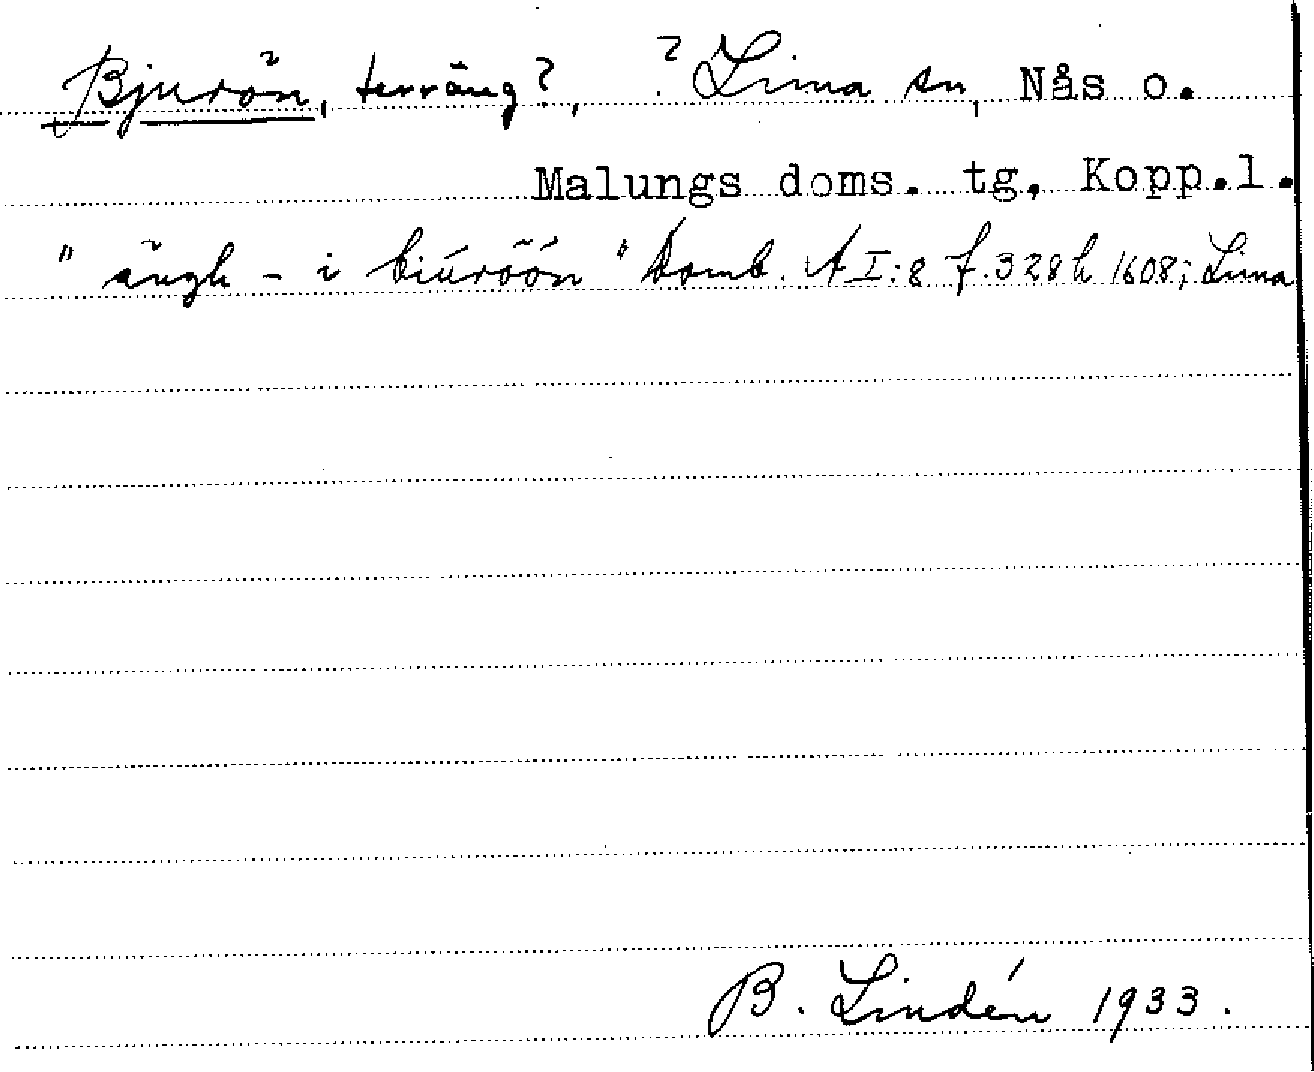 Bjurön, terräng?, ? Lima sn, Nås o.
Malungs doms. tg, Kopp.l.
"ängh - i biúröön" Domb. A I:8 f. 328 h 1608; Lima
B. Lindén 1933.